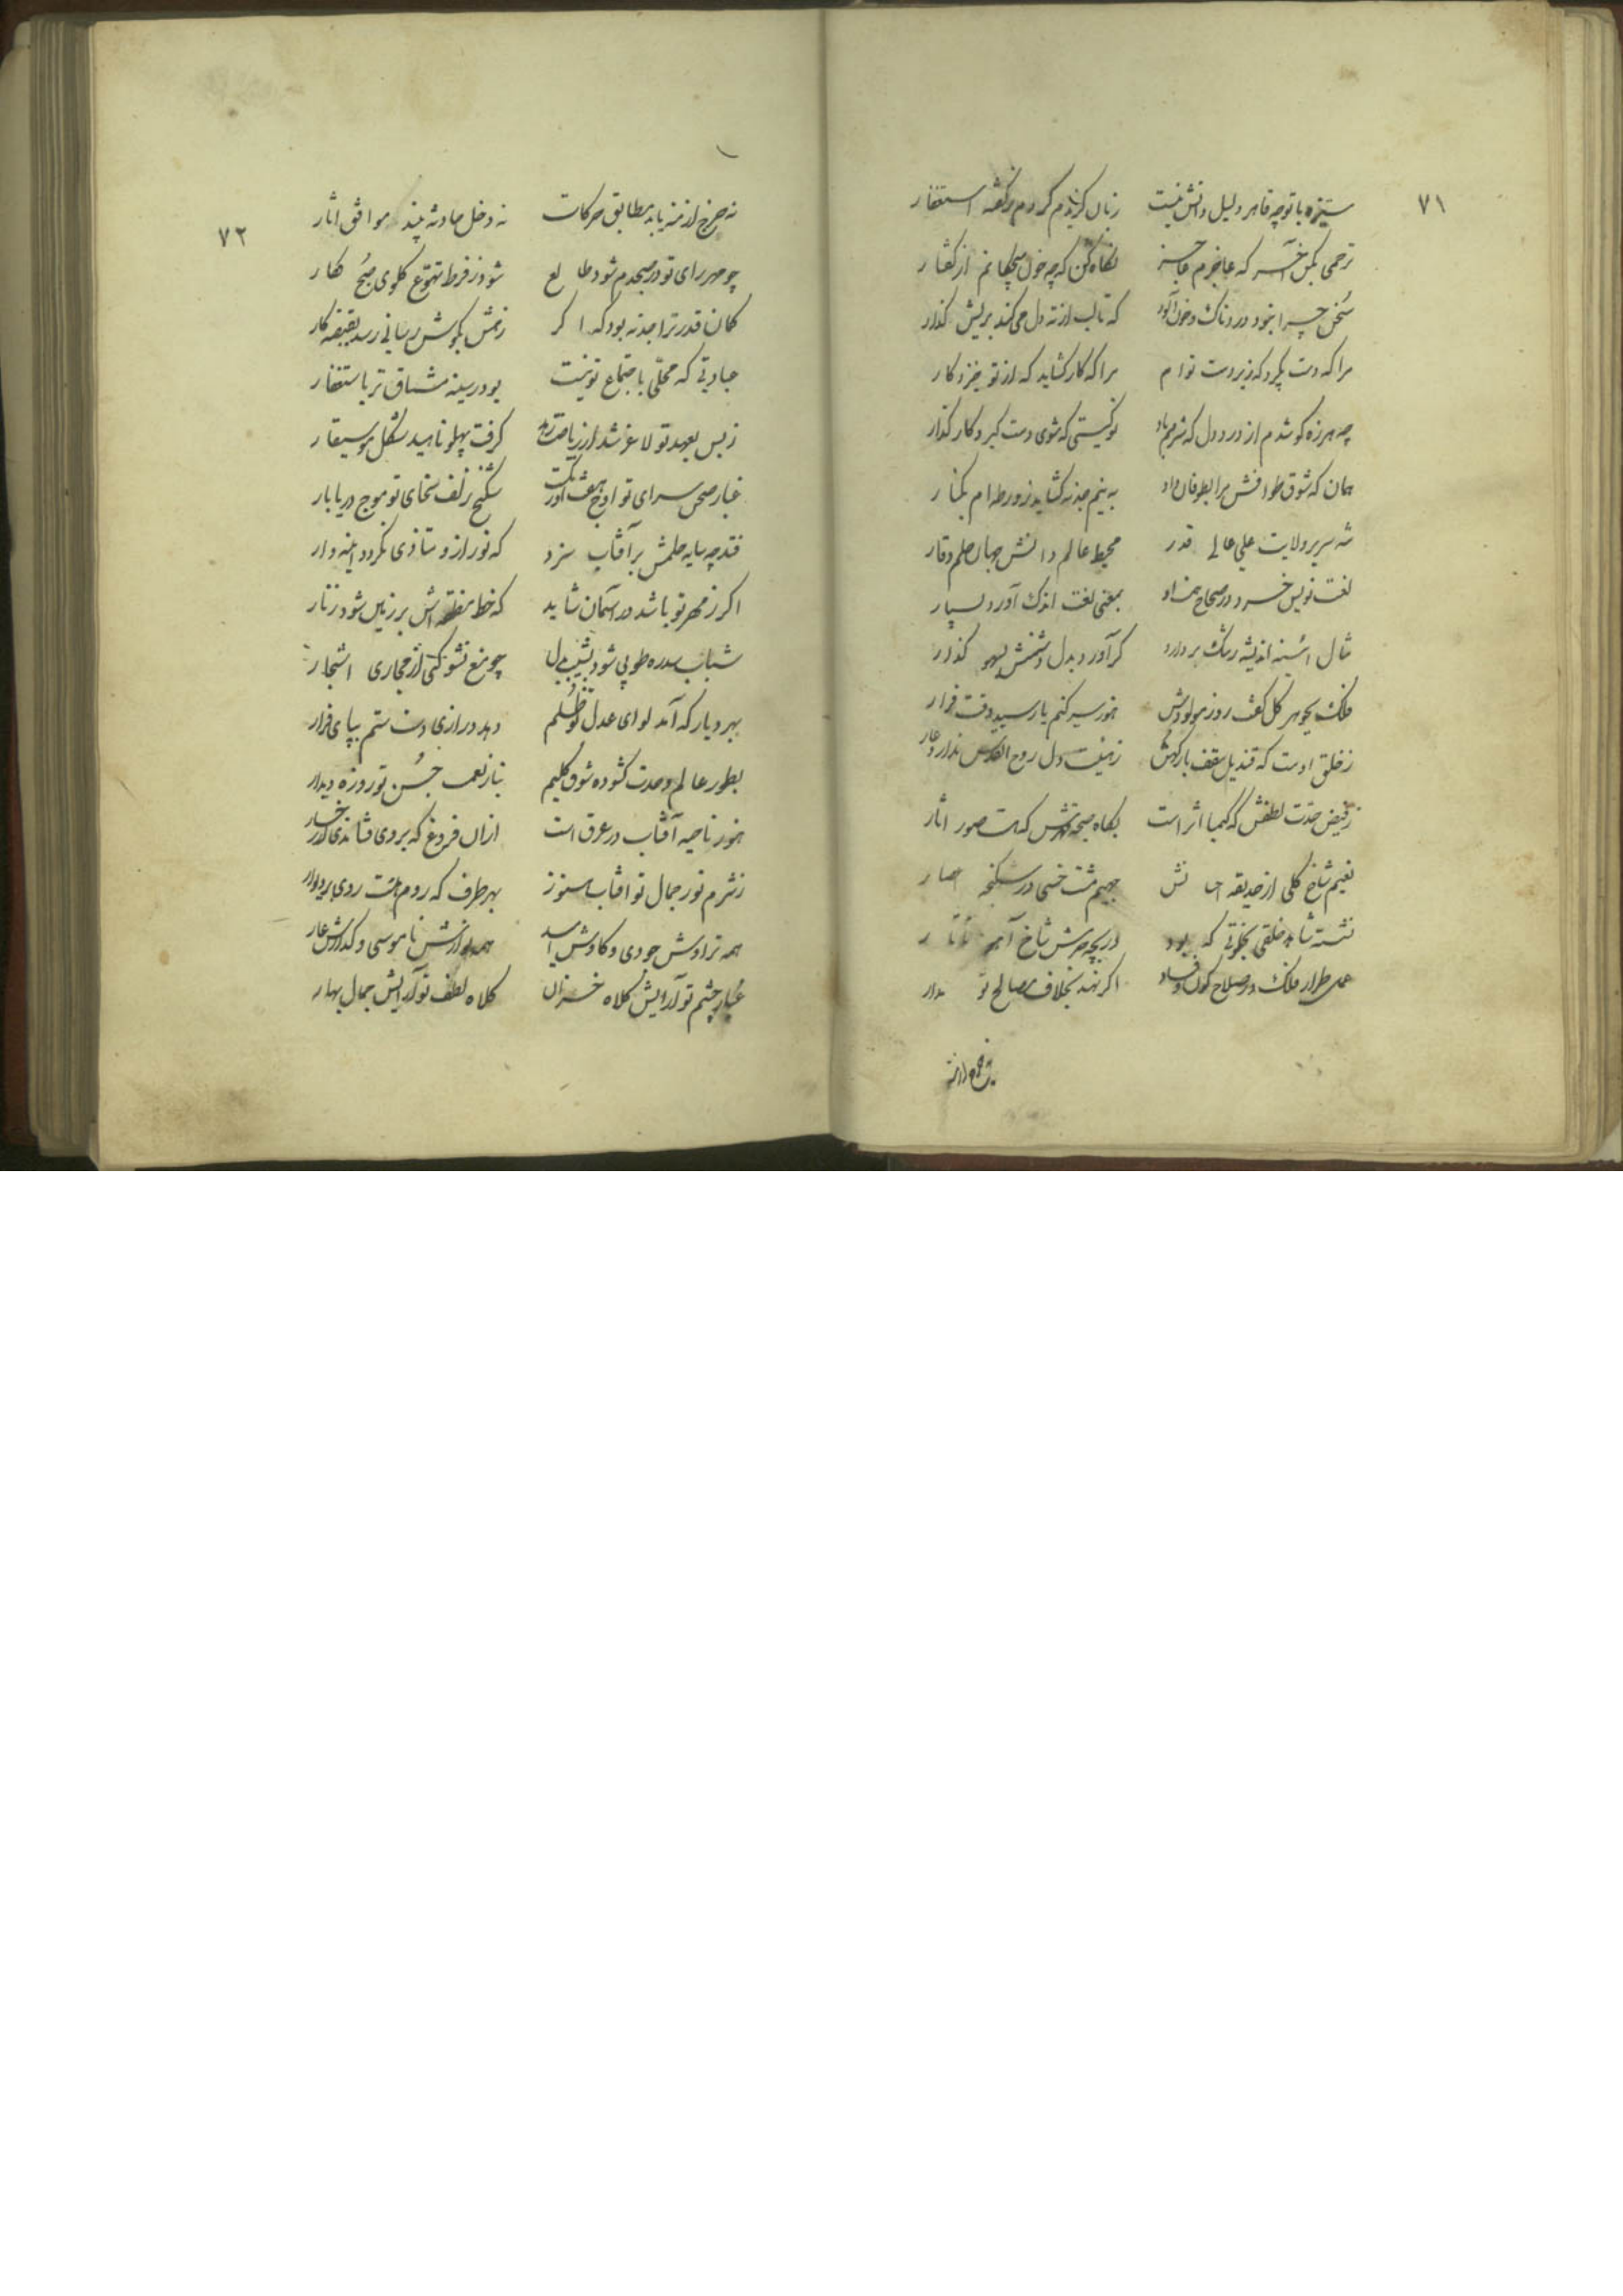 ۷۱
ستیزه با تو چه قاهر دلیل دانش نیست زبان گزیدم کردم بر گفته استغفار
ترحمی بکن آخر که عاجزم عاجز نگاه کن که چه خون میچکانم از گفتار
سخن چرا نبود دردناک و خون آلود که تا لب از ته دل می کند بریش گذار
مرا که دست بگیرد که زیردست توام مرا که کار گشاید که از تو خیزد کار
چه هرزه گو شدم از درد دل که شرمم باد تو کیستی که شوی دست گیر و کار گذار
همان که شوق طوافش مرا بطوفان داد به نیم جذبه گشاید ز ورطه ام بکنار
شه سریر ولایت علی عالی قدر محیط عالم دانش جهان حلم و وقار
لغت نویس خرد در صحاح همت او بمعنی لغت اندک آورد بسیار
مثال آینه اندیشه رنگ بردارد گر آورد بدل دشمنش بسهو گذار
فلک بجوهر کل گفت روز مولودش هنوز سیر کنم یا رسید وقت قرار
ز خلق اوست که قندیل سقف بارگهش زمینت دل روح القدس ندارد عار
ز فیض حدت لطفش که کیمیا اثر است بگاه صیحه قهرش که هست صور آثار
نعیم شاخ گلی از حدیقه جحیم مشت خسی در شکنجه
نشسته شاهد خلقی بخلوتی که بود دریچه حرمش شاخ آهوی تاتار
عمل طراز فلک در صلاح کون و فساد اگر نهد بخلاف مصالح تو مدار
نه چرخ ازمنه
۷۲
نه چرخ ازمنه یابد مطابق حرکات نه دخل حادثه بیند موافق آثار
چو مهر رای تو در صبحدم شود طالع شود ز فرط تهوع گلوی صبح فکار
کمان قدر ترا جذبه بود که اگر زهش بگوش رسانی رسد بقبضه کار
عبادتی که محلی باجتماع تو نیست بود بسینه مشتاق تر باستغفار
ز بس بعهد تو لاغر شد از ریاضت زهد گرفت پهلو ناهید شکل موسیقار
غبار صحن سرای تو اوج هفت اورنگ شکنج زلف سخای تو موج دریابار
فتد چه سایه حلمش بر آفتاب سزد که نور ازو متاذی نگردد آینه وار
اگر ز مهر تو باشد در آسمان شاید که خط منطقه اش بر زمین شود زنار
شباب سدره طوبی شود بشیب بدل چو منع نشو کنی از مجاری اشجار
بهر دیار که آمد لوای عدل تو ظلم دهد درازی دست ستم بپای فرار
بطور عالم وحدت گشوده شوق کلیم نیاز نعمت حسن تو روزه دیدار
هنوز ناصیه آفتاب در عرق است ازان فروغ که بروی فشاندی از رخسار
ز شرم نور جمال تو آفتاب هنوز بهر طرف که رود هست روی بر دیوار
همه تراوش جودی و کاوش امید همه نوازش ناموسی و گدازش عار
غبار چشم تو آرایش کلاه خزان کلاه لطف تو آرایش جمال بهار